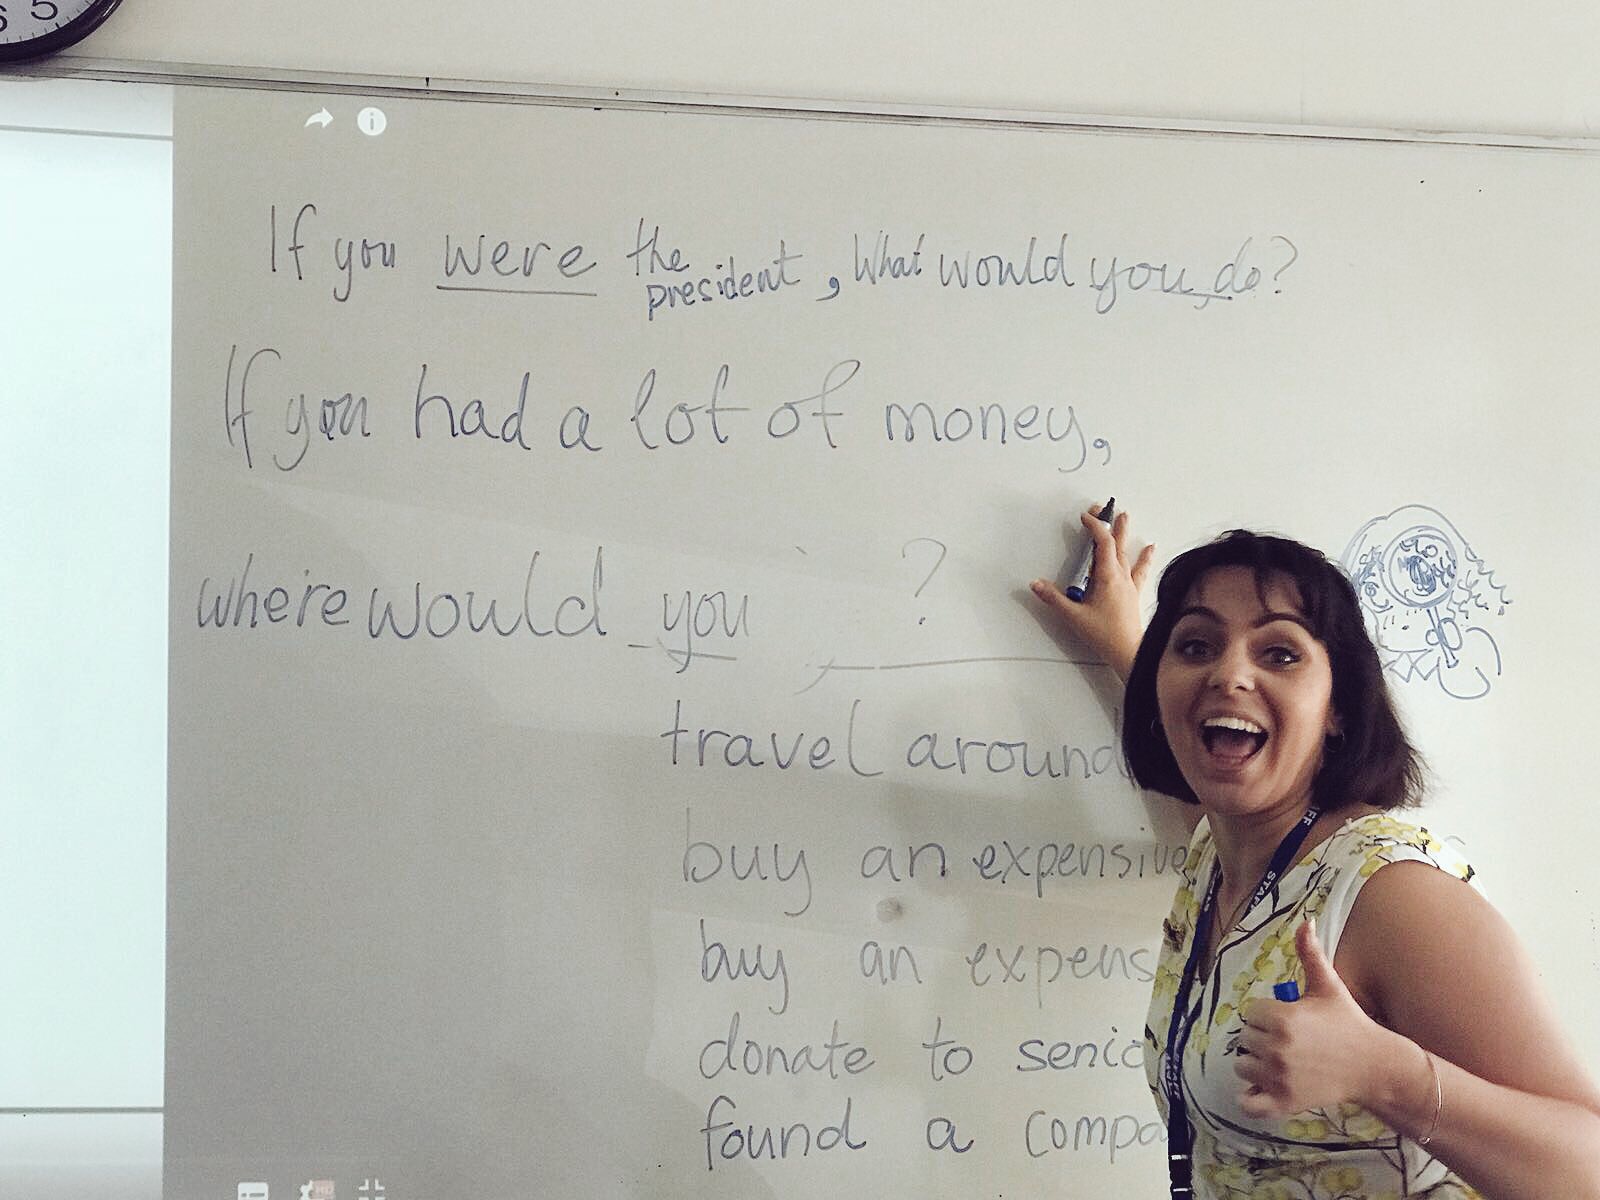 If you were the president, What would you do?
If you had a lot of money,
where would you ?
travel around
buy an expensive
buy an expens
donate to senio
found a compa
STAFF
5